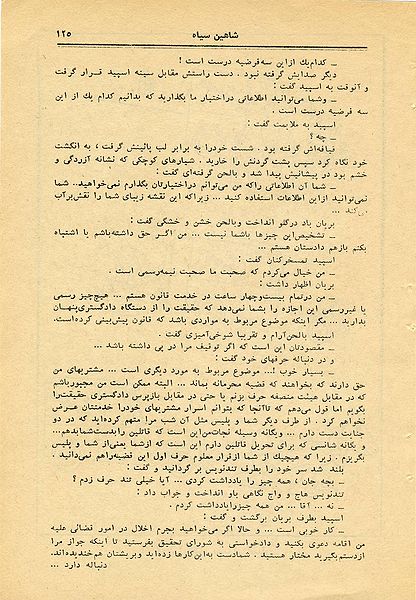 شاهین سیاه
۱۲۵
ـ کدام‌یك ازاین سه‌فرضیه درست است !
دیگر صدایش گرفته نبود . دست راستش مقابل سینه اسپید قرار گرفت
و آنوقت به اسپید گفت :
ـ وشما می‌توانید اطلاعاتی دراختیار ما بگذارید که بدانیم کدام یك از این
سه فرضیه درست است .
اسپید به ملایمت گفت :
ـ چه ؟
قیافه‌اش گرفته بود . شست خودرا به برابر لب پائینش گرفت ؛ به انگشت
خود نگاه کرد سپس پشت گردنش را خارید . شیارهای کوچکی که نشانه آزردگی و
خشم بود در پیشانیش پیدا شد و بالحن گرفته‌ای گفت :
ـ شما آن اطلاعاتی راکه من می‌توانم دراختیارتان بگذارم نمی‌خواهید.. شما
نمی‌توانید ازاین اطلاعات استفاده کنید ... زیراکه این نقشه زیبای شما را نقش‌برآب
می‌کند ...
بریان باد درگلو انداخت وبالحن خشن و خشکی گفت :
ـ تشخیص‌این چیزها باشما نیست ... من اگر حق داشته‌باشم یا اشتباه
بکنم بازهم دادستان هستم ...
اسپید تمسخرکنان گفت :
ـ من خیال می‌کردم که صحبت ما صحبت نیمه‌رسمی است .
بریان اظهار داشت :
ـ من درتمام بیست‌وچهار ساعت در خدمت قانون هستم ... هیچ‌چیز رسمی
یا غیررسمی این اجازه را بشما نمی‌دهد که حقیقت را از دستگاه دادگستری‌پنهان
بدارید ... مگر اینکه موضوع مربوط به مواردی باشد که قانون پیش‌بینی کرده‌است.
اسپید بالحن‌آرام و تقریبا شوخی‌آمیزی گفت :
ـ مقصودتان این است که اگر توقیف مرا در پی داشته باشد ...
و در دنباله حرفهای خود گفت :
ـ بسیار خوب !... موضوع مربوط به مورد دیگری است ... مشتریهای من
حق دارند که بخواهند که قضیه محرمانه بماند ... البته ممکن است من مجبورباشم
که در مقابل هیئت منصفه حرف بزنم یا حتی در مقابل بازپرس دادگستری حقیقت‌را
بگویم اما قول می‌دهم که تاآنجا که بتوانم اسرار مشتریهای خودرا خدمتتان عرض
نخواهم کرد . از طرف دیگر شما و پلیس مثل آن شب مرا متهم کرده‌اید که در دو
جنایت دست دارم ... ویگانه وسیله نجات‌من‌این است که قاتلین رابدست‌شمابدهم...
و یگانه شانسی که برای تحویل قاتلین دارم این است که ازشما یعنی‌از شما و پلیس
بگریزم . زیرا که هیچیك از شما ازقرار معلوم حرف اول این قضیه‌راهم نمی‌دانید .
بلند شد سر خود را بطرف تندنویس بر گردانید و گفت :
ـ بچه جان ؛ همه چیز را یادداشت کردی ... آیا خیلی تند حرف زدم ؟
تندنویس هاج و واج نگاهی باو انداخت و جواب داد :
ـ نه ... آقا ... من همه چیزرایادداشت کردم .
اسپید بطرف بریان برگشت و گفت :
ـ کار خوبی است ... و حالا اگر می‌خواهید بجرم اخلال در امور قضائی علیه
من اقامه دعوی بکنید و دادخواستی به شورای تحقیق بفرستید تا اینکه جواز مرا
ازدستم‌بگیرید مختار هستید . شمادست به‌این‌کارها زده‌اید وبریشتان هم‌خندیده‌اند.
دنباله دارد ...